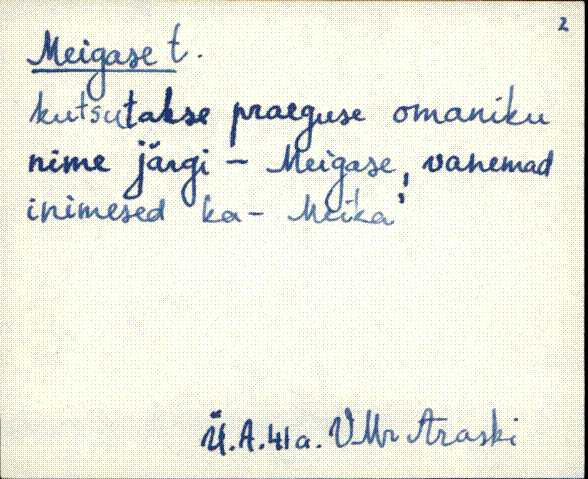 2
Meigase t.
kutsutakse praeguse omaniku
nime järgi - Meigase, vanemad
inimesed ka - Meika'
Ü.A.41a. VMr Araski